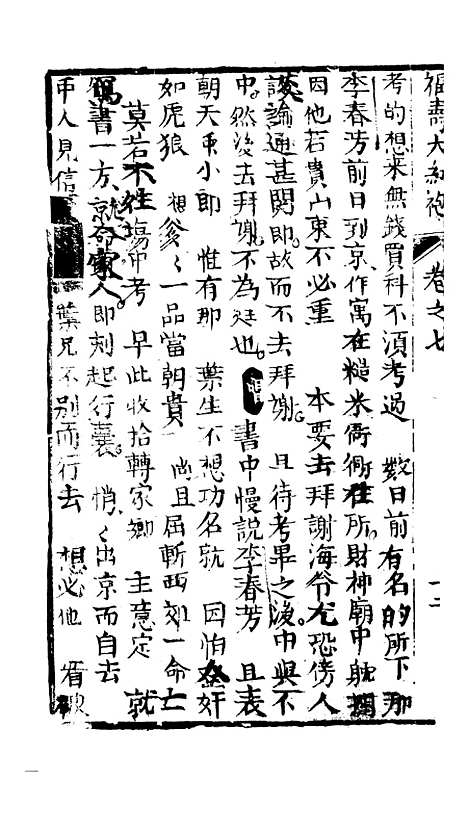 福壽大紅袍 卷之七 十二
考的想来無錢買科不湏考過 数日前有名的所下那
李春芳前日到京作寓在糙米衙衕在所財神廟中躭擱
因他若貴山東不必重 本要去拜謝海爷尤恐傍人
談論通甚関即故而不去拜謝 且待考畢之後中與不
中然後去拜謝不為廷也 書中慢說李春芳 且表
朝天不小郎 惟有那 葉生不想功名就 因怕奸
如虎狼 想爹〻一品當朝貴 尚且屈斬西郊一命亡
莫若不往塲中考 早此收拾轉家鄉 主意定 就
寫書一方京家人即刻起行囊 悄〻出京而自去
人見信 葉兄不别而行去 想必他 有